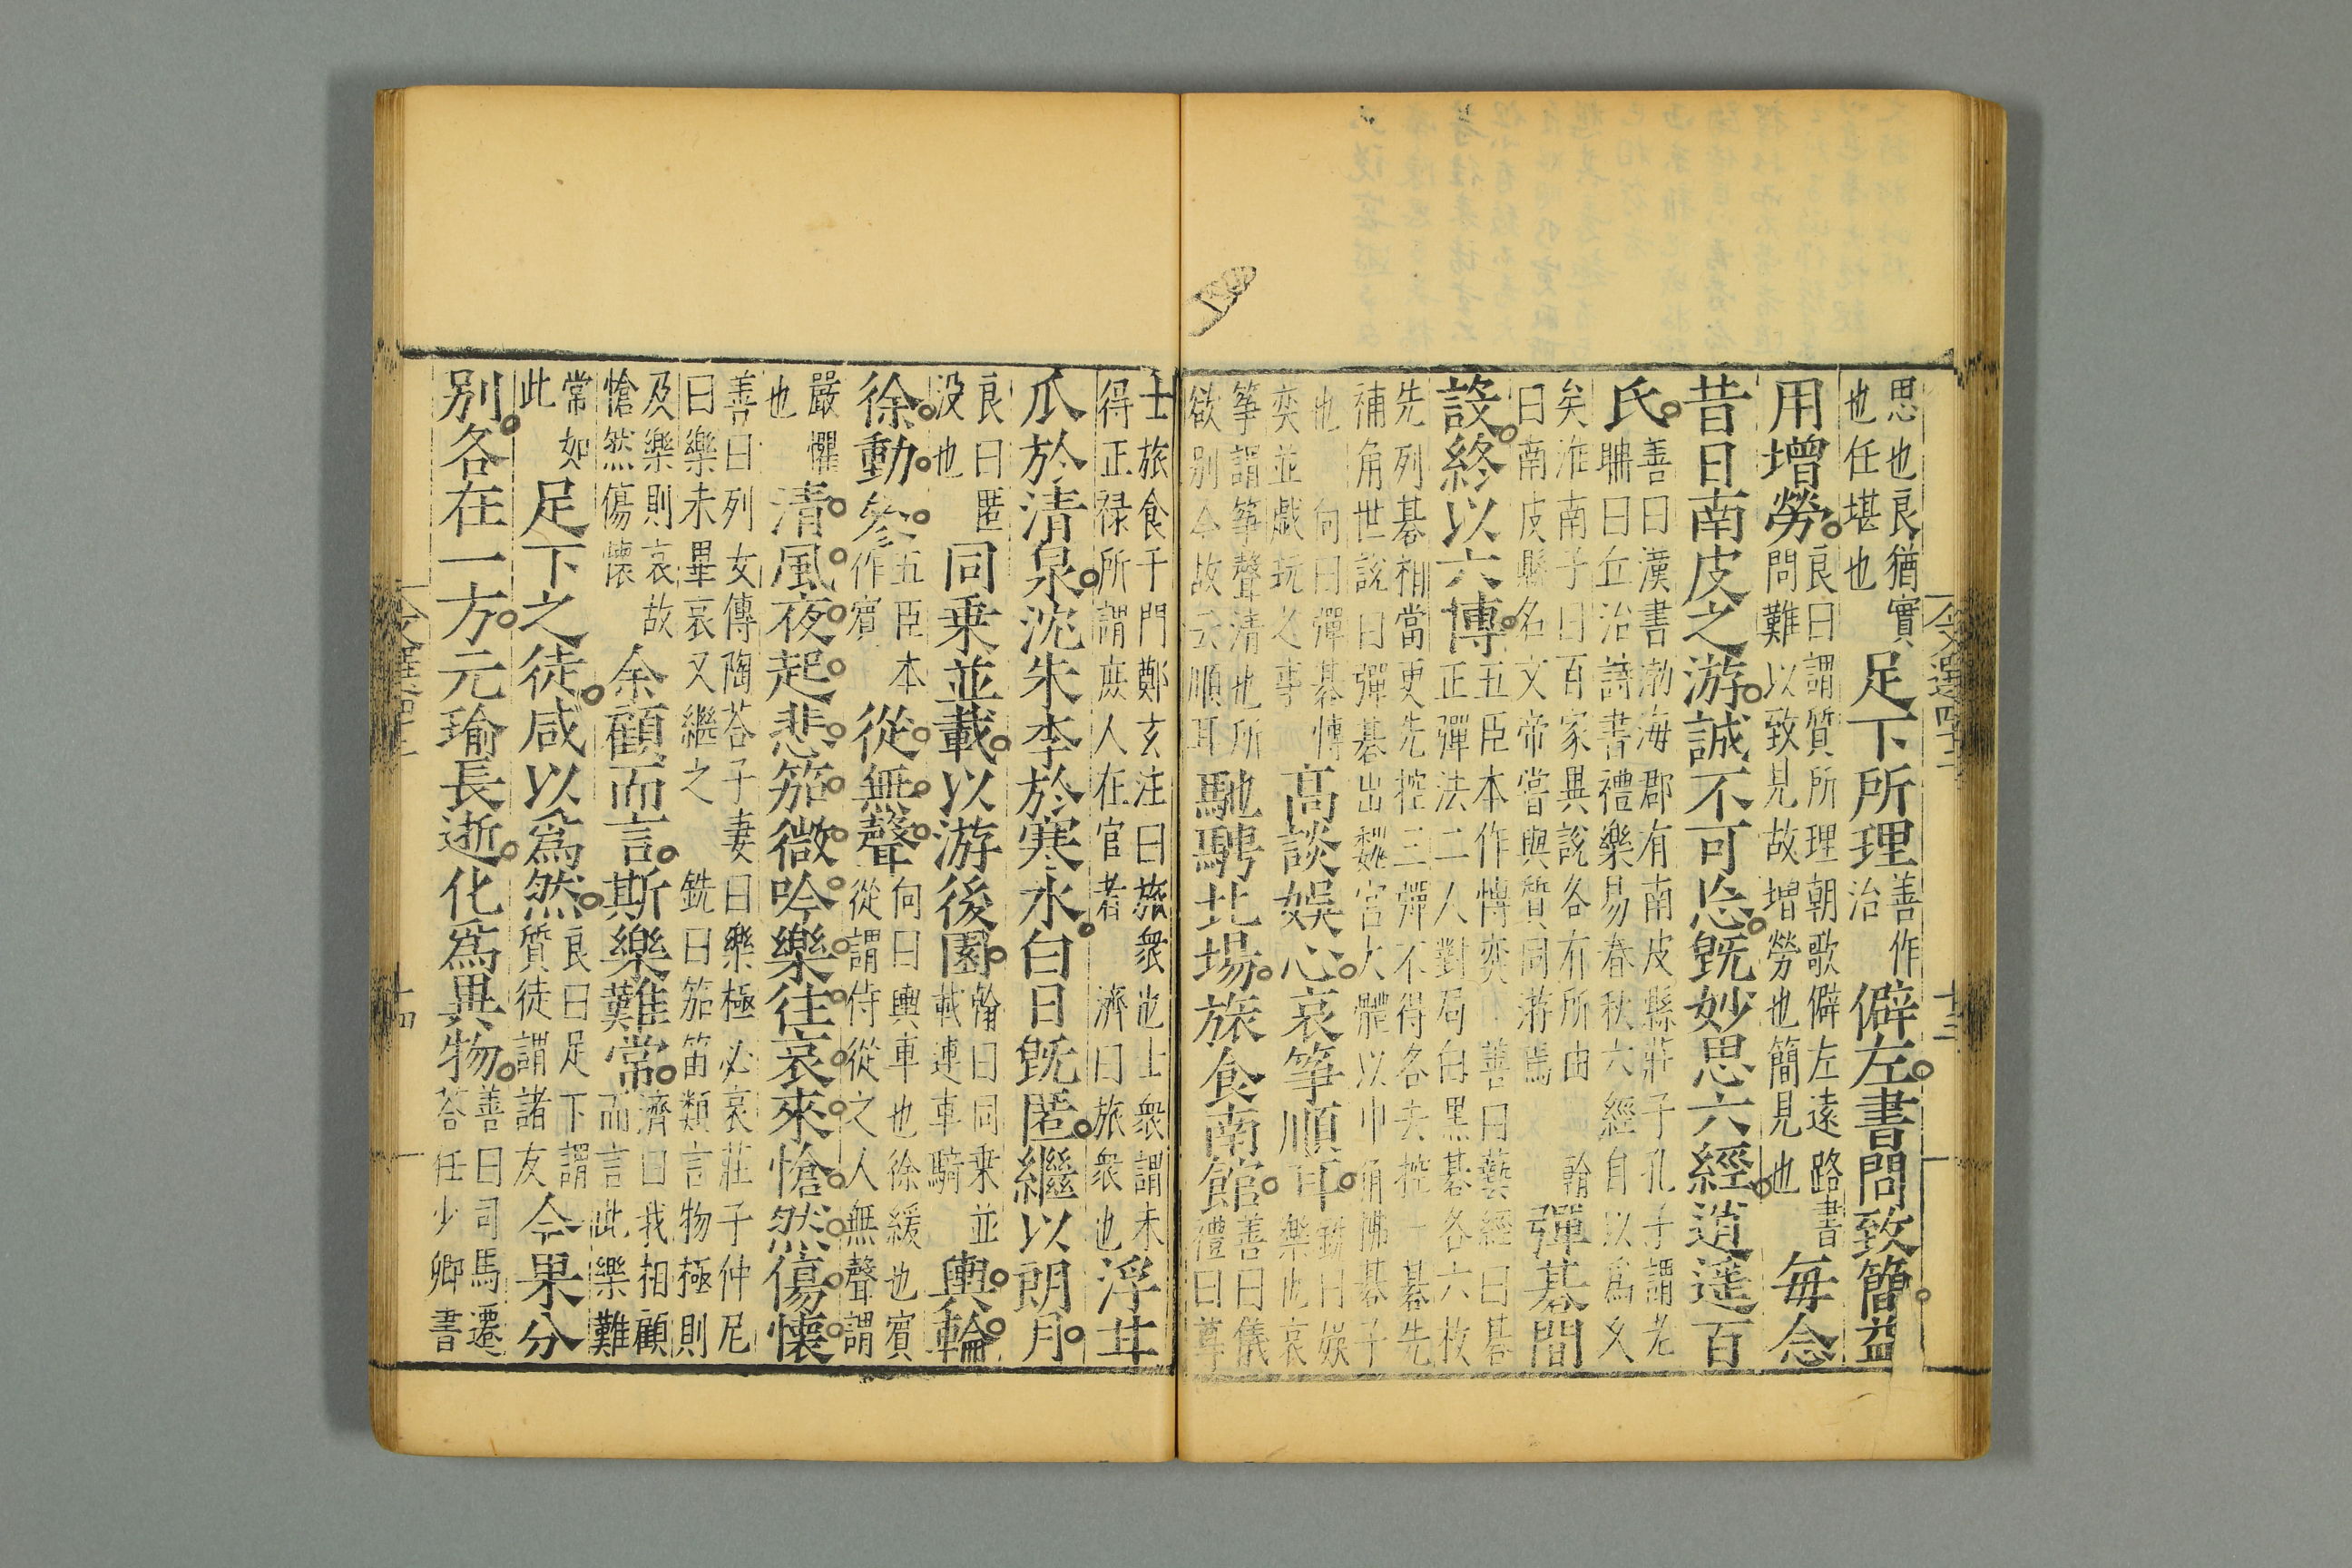 文選四十二 十三
思也良猶實
也任堪也
足下所理
善作
治
僻左書問致簡益
用增勞
良曰謂質所理朝歌僻左遠路書
問難以致見故增勞也簡見也
每念
昔日南皮之游誠不可忘旣妙思六經逍遥百
氏
善曰漢書渤海郡有南皮縣莊子孔子謂老
聃曰丘治詩書禮樂易春秋六經自以爲久
矣淮南子曰百家異說各有所由 翰
曰南皮縣名文帝嘗與質同游焉
彈碁間
設終以六博
五臣本作愽奕 善曰藝經曰碁
正彈法二人對局白黑碁各六枚
先列碁相當更先控三彈不得各去控一碁先
補角世說曰彈碁出魏宮大體以巾角拂碁子
也 向曰彈碁愽
奕並戯玩之事
高談娛心哀箏順耳
銑曰娛
樂也哀
箏謂箏聲清也所
欲別今故云順耳
馳騁北場旅食南館
善曰儀
禮曰尊
士旅食于門鄭玄注曰旅衆也士衆謂未
得正禄所謂庶人在官者 濟曰旅衆也
浮甘
瓜於清泉沈朱李於寒水白日旣匿繼以朗月
良曰匿
没也
同乗並載以游後園
翰曰同乗並
載連車騎
輿輪
徐動參
五臣本
作賓
從無聲
向曰輿車也徐緩也賓
從謂侍從之人無聲謂
嚴懼
也
清風夜起悲笳微吟樂往哀來愴然傷懷
善曰列女傳陶荅子妻曰樂極必哀莊子仲尼
曰樂未畢哀又繼之 銑曰笳笛類言物極則
及樂則哀故
愴然傷懷
余顧而言斯樂難常
濟曰我相顧
而言此樂難
常如
此
足下之徒咸以爲然
良曰足下謂
質徒謂諸友
今果分
別各在一方元瑜長逝化爲異物
善曰司馬遷
荅任少卿書
十四